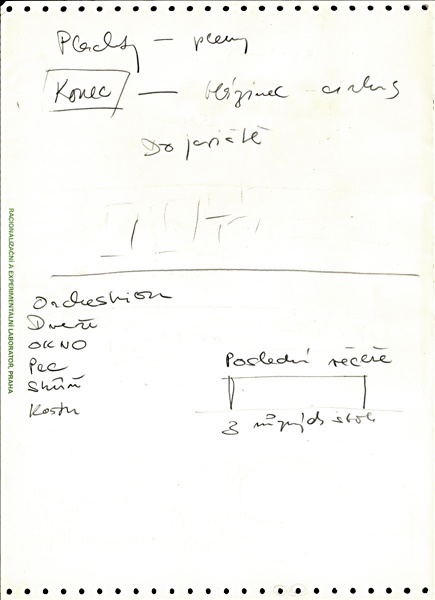 Plachty —
Konec — blázinec - cirkus
Do jeviště
RACIONALIZAČNÍ A EXPERIMENTÁLNÍ LABORATOŘ, PRAHA
Orchestrion
Dveře
OKNO
Pec
Skříň
Poslední večeře
3 stoly